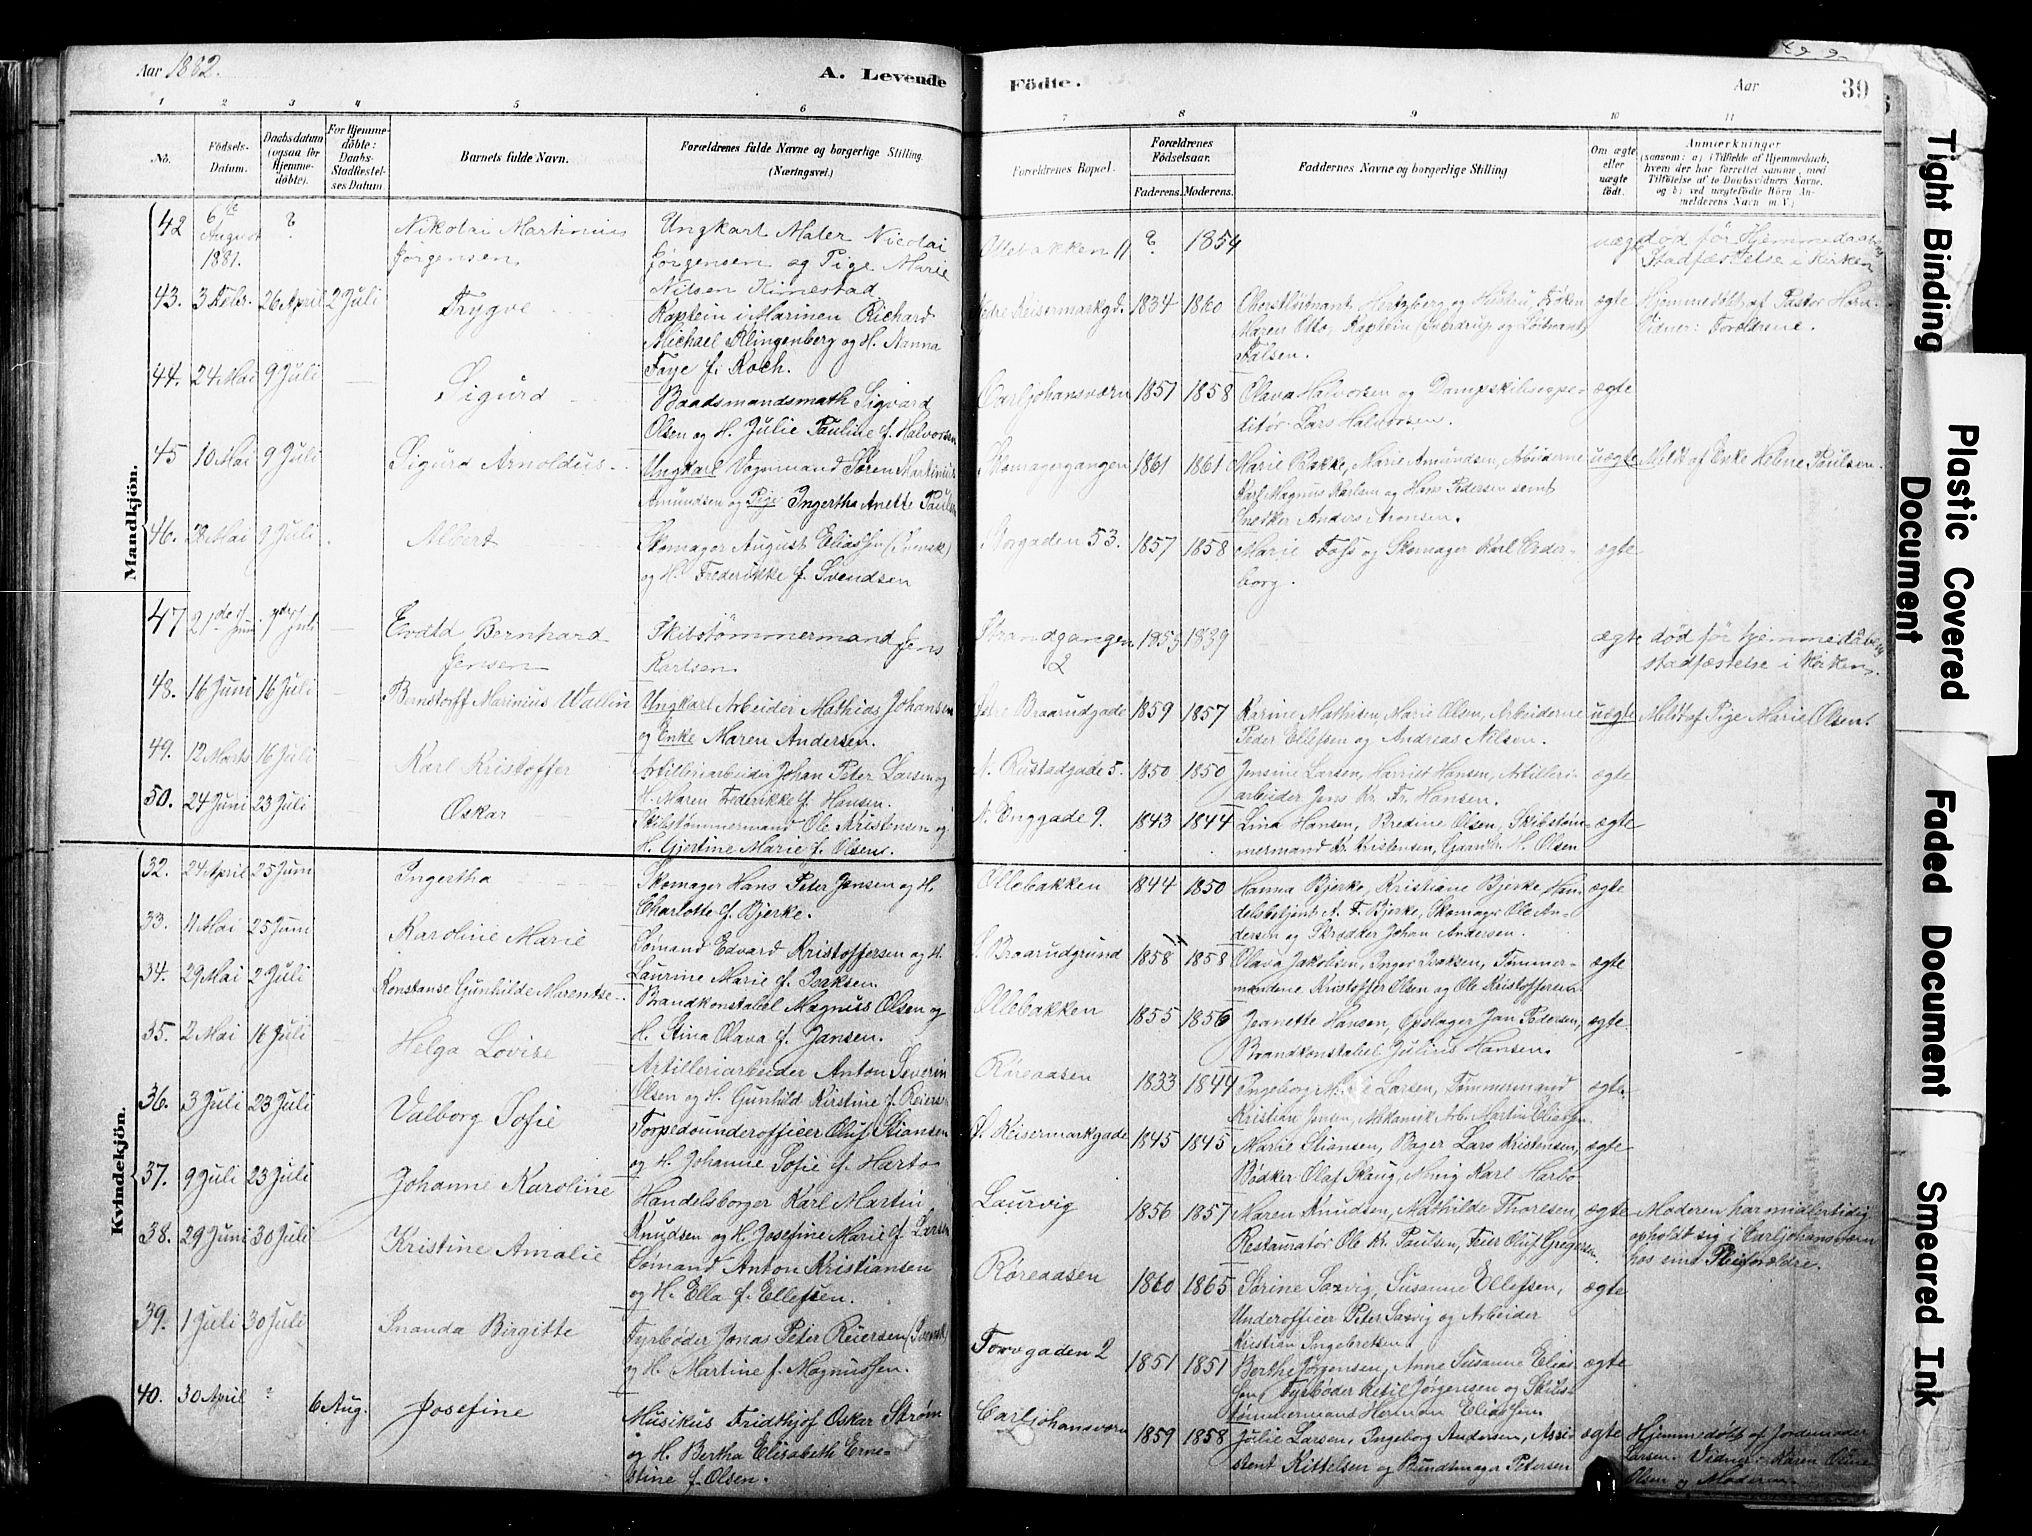 Aar 1882.
A. Levende
1 2 3 4 5 6
No.
Födsels-Datum.
Daabsdatum (ogsaa for Hjemmedöbte).
For Hjemmedöbte: Daabs-Stadfæstelses Datum
Barnets fulde Navn.
Forældrenes fulde Navne og borgerlige Stilling. (Næringsvei.)
Mandkjön.
42 6te August 1881. ? Nikolai Martinius Jørgensen Ungkarl Maler Nicolai Jørgensen og Pige Marie Nilsen Kimestad
43. 3 Febr. 26 April 2 Juli Trygve Kaptein i Marinen Richard Michael Klingenberg og H. Nanna Faye f. Koch.
44. 24 Mai 9 Juli Sigurd Baadsmandsmath Sigvard Olsen og H. Julie Pauline f. Halvorsen
45 10 Mai 9 Juli Sigurd Arnoldus Ungkarl Vognmand Søren Martinius Amundsen og Pige Ingertha Anette Paulsen
46. 28 Mai 9 Juli Albert Skomager August Eliassen (Svensk) og H. Frederikke f. Svendsen
47 21de Juni 7de Juli Evald Bernhard Jensen Skibstømmermand Jens Karlsen
48. 16 Juni 16 Juli Berndtorff Marinius Wallin Ungkarl Arbeider Mathias Johansen og Enke Maren Andersen.
49. 12 Marts 16 Juli Karl Kristoffer Artilleriarbeider Johan Peter Larsen og H. Maren Frederikke f. Hansen.
50. 24 Juni 23 Juli Oskar Skibstømmermand Ole Kristensen og H. Gjertine Marie f. Olsen.
Kvindekjön.
32. 24 April 25 Juni Ingertha Skomager Hans Peter Jensen og H. Charlotte f. Bjerke.
33. 11 Mai 25 Juni Karoline Marie Sømand Edvard Kristoffersen og H. Laurine Marie f. Isaksen.
34. 29 Mai 2 Juli Konstanse Gunhilde Marentse Brandkonstabel Magnus Olsen og H. Stina Olava f. Jansen.
35. 2 Mai 16 Juli Helga Lovise Artilleriarbeider Anton Severin Olsen og H. Gunhild Kirstine f. Reiers.
36. 3 Juli 23 Juli Valborg Sofie Torpedounderofficer Oluf Stiansen og H. Johanne Sofie f. Harbo
37. 9 Juli 23 Juli Johanne Karoline Handelsborger Karl Martin Knudsen og H. Josefine Marie f. Larsen
38. 29 Juni 30 Juli Kristine Amalie Sømand Anton Kristiansen og H. Ella f. Ellefsen.
39. 1 Juli 30 Juli Inanda Birgitte Fyrbøder Jonas Peter Reiersen (Svensk) og H. Martine f. Magnussen.
40. 30 April ? 6 Aug. Josefine Musikus Fridthjof Oskar Strøm og H. Bertha Elisabeth Ernestine f. Olsen.
Födte.
Aar
39
7 8 9 10 11
Forældrenes Bopæl.
Forældrenes Födselsaar.
Faderens. Moderens.
Faddernes Navne og borgerlige Stilling
Om ægte eller uægte födt.
Anmærkninger (saasom: a) i Tilfælde af Hjemmedaab, hvem der har forrettet samme, med Tilföielse af to Daabsvidners Navne, og b) ved uægtefödte Börn Anmelderens Navn m. V.)
Ollebakken 11 ? 1854 uægte død før Hjemmedaabens Stadfæstelse i Kirken
Nedre Keisermarkgd. 1834 1860 Oberstløitnant Hertzberg og Hustru, Frøken Karen Otto, Kaptein Sverdrup og Løitnant Falsen. ægte Hjemmedøbt af Pastor Horn. Vidner: Forældrene.
Carljohansværn 1857 1858 Olava Halvorsen og Dampskibsexpeditør Lars Halvorsen. ægte
Skomagergangen 1861 1861 Marie Bakke, Marie Amundsen, Arbeiderne Karl Magnus Karlsen og Hans Pedersen samt Snedker Anders Aronsen. uægte Meldt af Enke Helene Paulsen.
Storgaden 53. 1857 1858 Marie Foss og Skomager Karl Cederborg. ægte
Strandgangen 2 1853 1839 ægte død før hjemmedåbens stadfæstelse i Kirken.
Søndre Braarudgade 1859 1857 Karine Mathisen, Marie Olsen, Arbeiderne Peder Ellefsen og Andreas Nilsen. uægte Meldt af Pige Marie Olsen.
N. Rustadgade 5. 1850 1850 Jensine Larsen, Harriet Hansen, Artilleriarbeider Jens Kr. Fr. Hansen. ægte
N. Enggade 9. 1843 1844 Lina Hansen, Bredine Olsen, Skibstømmermand Kr. Kristensen, Gaardb. M. Olsen ægte
Ollebakken 1844 1850 Hanna Bjerke, Kristiane Bjerke, Handelsbetjent A. F. Bjerke, Skomager Ole Andersen og Skrædder Johan Andersen. ægte
S. Braarudgrund 1858 1858 Olava Jakobsen, Inger Isaksen, Tømmermændene Kristoffer Olsen og Ole Kristoffersen. ægte
Ollebakken 1855 1856 Jeanette Hansen, Opslager Jan Pedersen, Brandkonstabel Julius Hansen. ægte
Røreaasen 1833 1844 Ingeborg Larsen, Tømmermand Kristian Jensen, Mekanisk Arb. Martin Eliassen. ægte
N. Keisermarkgade 1845 1845 Marie Stiansen, Bager Lars Kristensen, Bødker Olaf Skaug, Karl Harbo ægte
Laurvig 1856 1857 Maren Knudsen, Mathilde Thoresen, Restauratør Ole Kr. Paulsen, Feier Oluf Gregersen. ægte Moderen har midlertidig opholdt sig i Carljohansværn hos sine Pleieforældre.
Røreaasen 1860 1865 Sørine Saxvig, Susanne Ellefsen, Underofficer Peter Saxvig og Arbeider Kristian Ingebretsen. ægte
Torvgaden 2 1851 1851 Berthe Jørgensen, Anne Susanne Eliassen, Fyrbøder Ketil Jørgensen og Skibstømmermand Herman Eliassen. ægte
Carljohansværn 1859 1858 Julie Larsen, Ingeborg Andersen, Assistent Kittelsen og Bundtmager Petersen ægte Hjemmedøbt af Jordemoder Larsen. Vidner: Karen Oline Olsen og Moderen.
Tight Binding
Plastic Covered Document
Faded Document
Smeared Ink